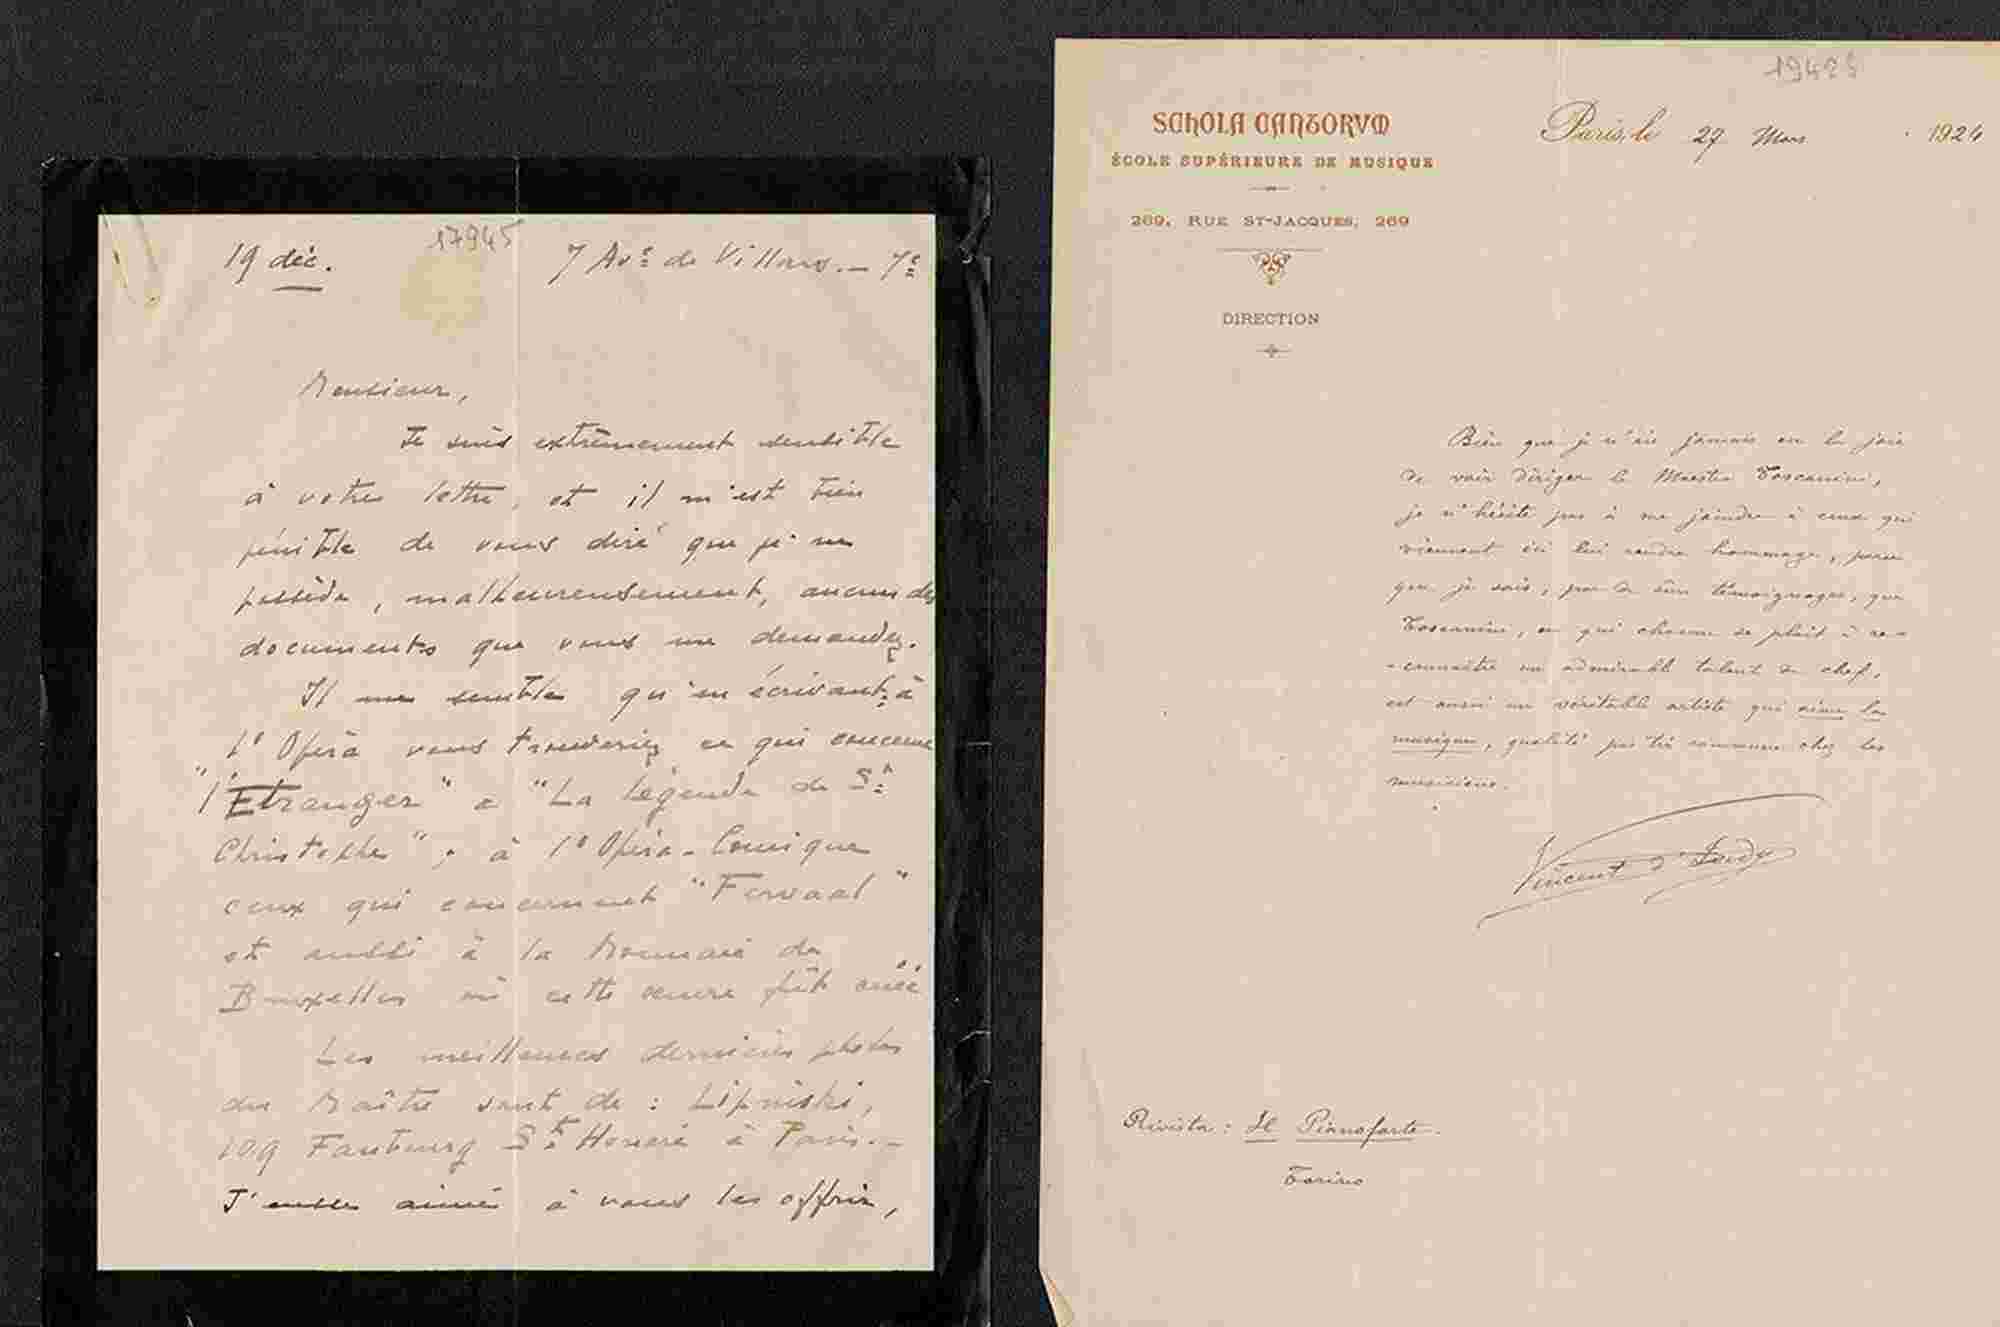 17945
19 déc.
7 Avᵉ de Villars. — 7ᵉ
Monsieur,
Je suis extrêmement sensible
à votre lettre, et il m'est bien
pénible de vous dire que je ne
possède, malheureusement, aucun des
documents que vous me demandez.
Il me semble qu'en écrivant à
l'Opéra vous trouveriez ce qui concerne
"l'Etranger" & "La légende de Sᵗ
Christophe"; à l'Opéra-Comique
ceux qui concernent "Fervaal"
et aussi à la Monnaie de
Bruxelles où cette œuvre fût créée
Les meilleures dernières photos
du Maître sont de : Lipniski,
109 Faubourg Sᵗ Honoré à Paris. —
J'eusse aimé à vous les offrir,
19423
SCHOLA CANTORVM
ÉCOLE SUPÉRIEURE DE MUSIQUE
269, RUE ST-JACQUES, 269
DIRECTION
Paris, le 27 Mars 1924
Bien que je n'aie jamais eu la joie
de voir diriger le Maestro Toscanini,
je n'hésite pas à me joindre à ceux qui
viennent ici lui rendre hommage, parce
que je sais, par de sûrs témoignages, que
Toscanini, en qui chacun se plait à re-
-connaître un admirable talent de chef,
est aussi un véritable artiste qui aime la
musique, qualité pas très commune chez les
musiciens.
Vincent d'Indy
Rivista : Il Pianoforte.
Torino